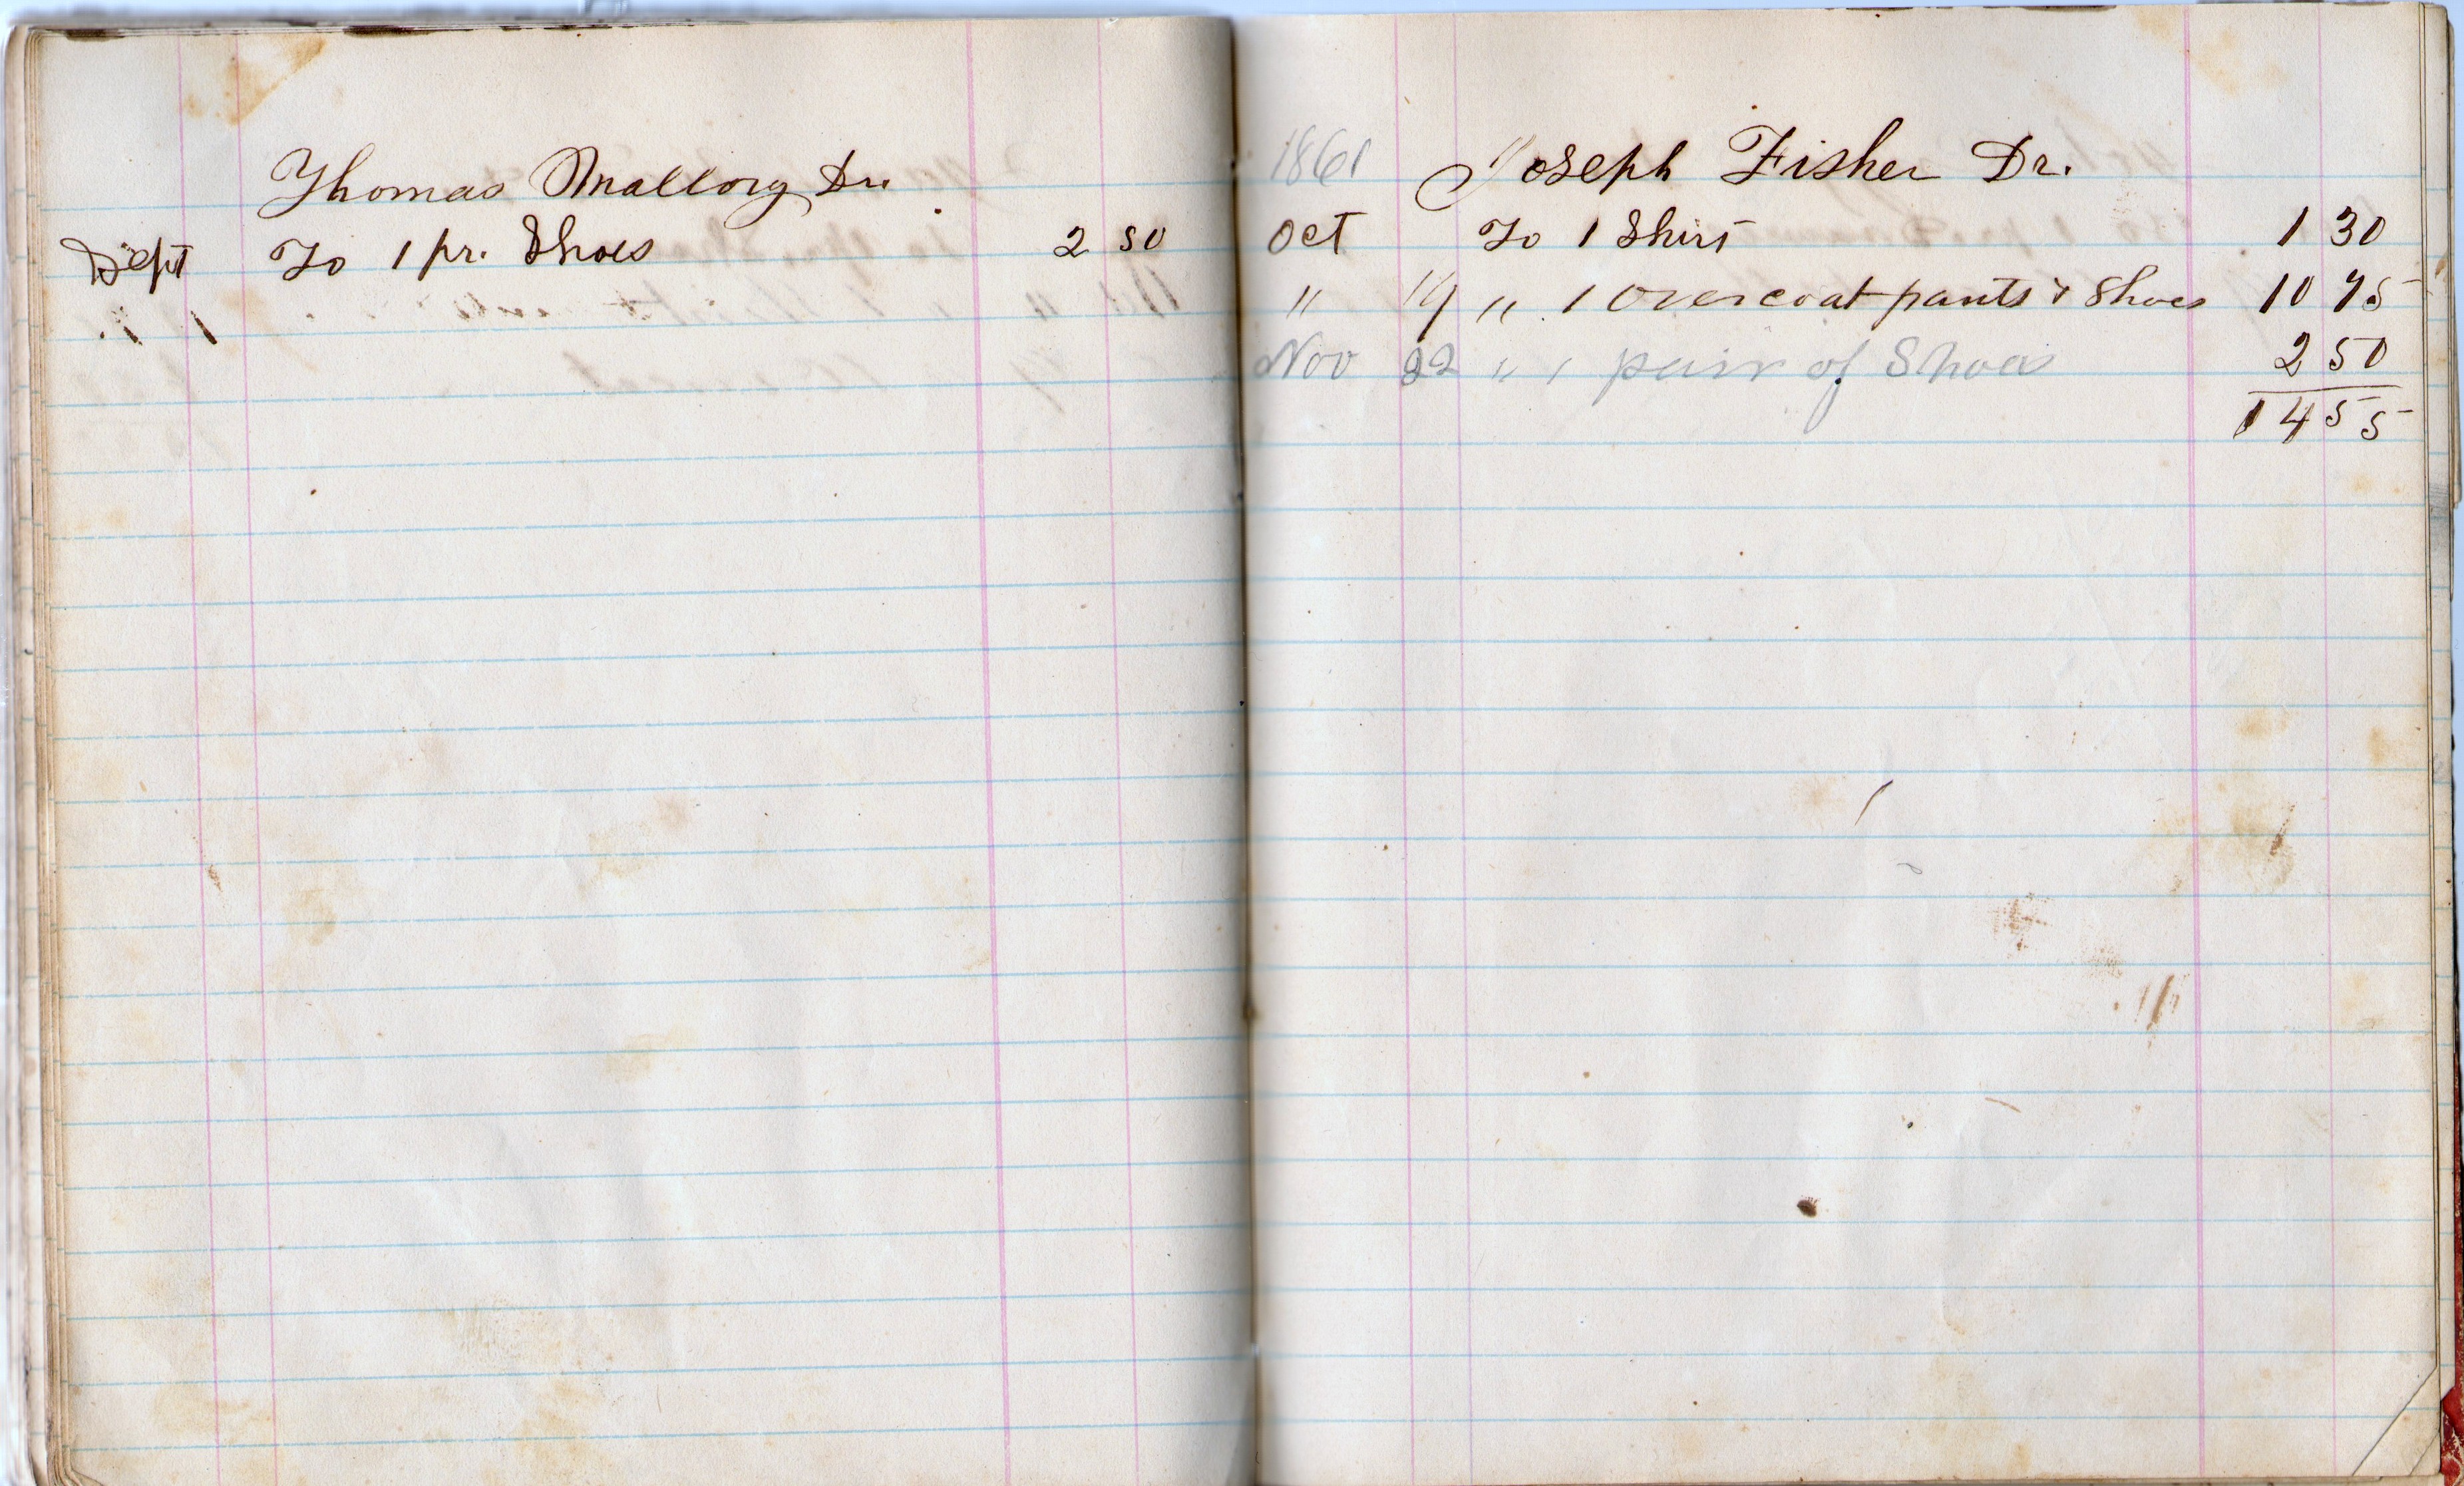 Thomas Mallory Dr.
Sept To 1 pr. Shoes 2 50
1861 Joseph Fisher Dr.
Oct To 1 Shirt 1 30
" 19 " 1 Overcoat pants & Shoes 10 75
Nov 22 " 1 pair of Shoes 2 50
14 55